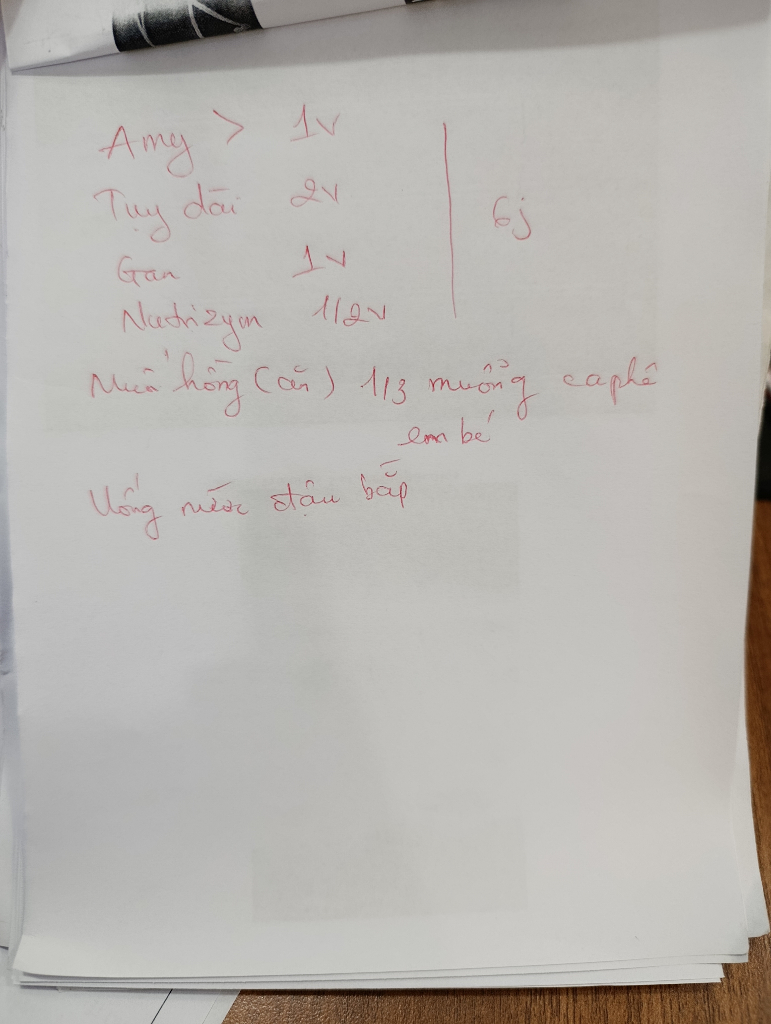 Amy > 1v
Tụy dài 2v
Gan 1v
6j
Natrizym 1/2v
Muối hồng (ăn) 1/3 muỗng caphê
em bé
Uống nước đậu bắp